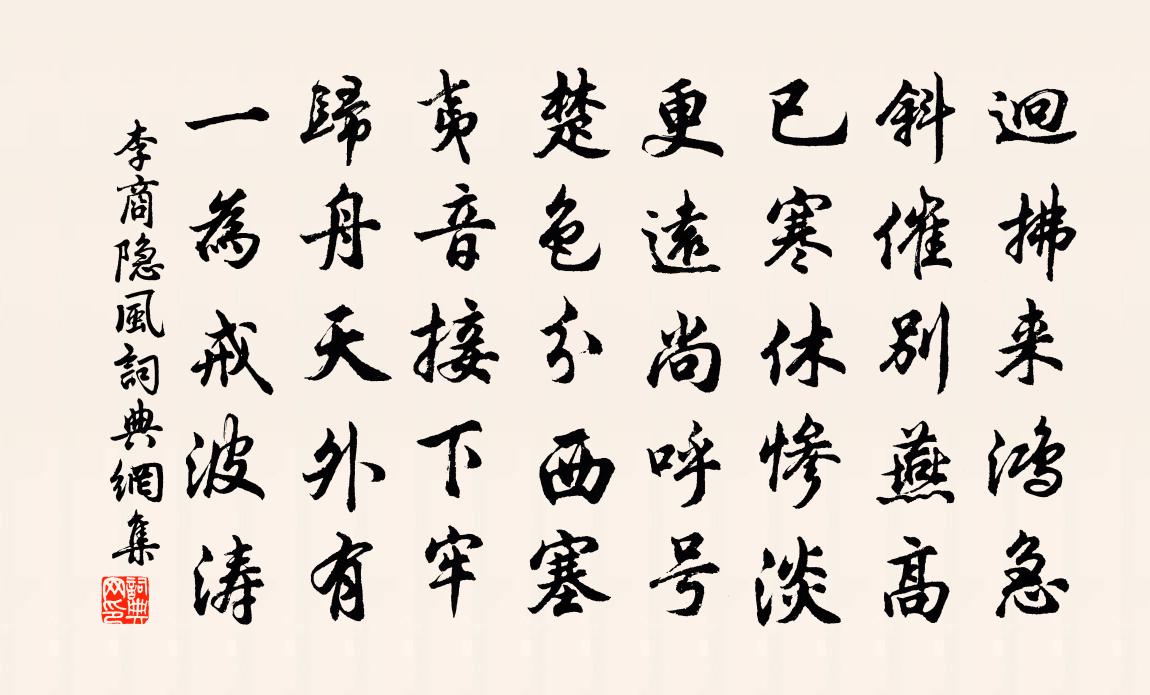 迥拂来鸿急
斜催别燕高
已寒休惨淡
更遠尚呼号
楚色分西塞
夷音接下牢
歸舟天外有
一為戒波涛
李商隐風詞典網集
詞典网印